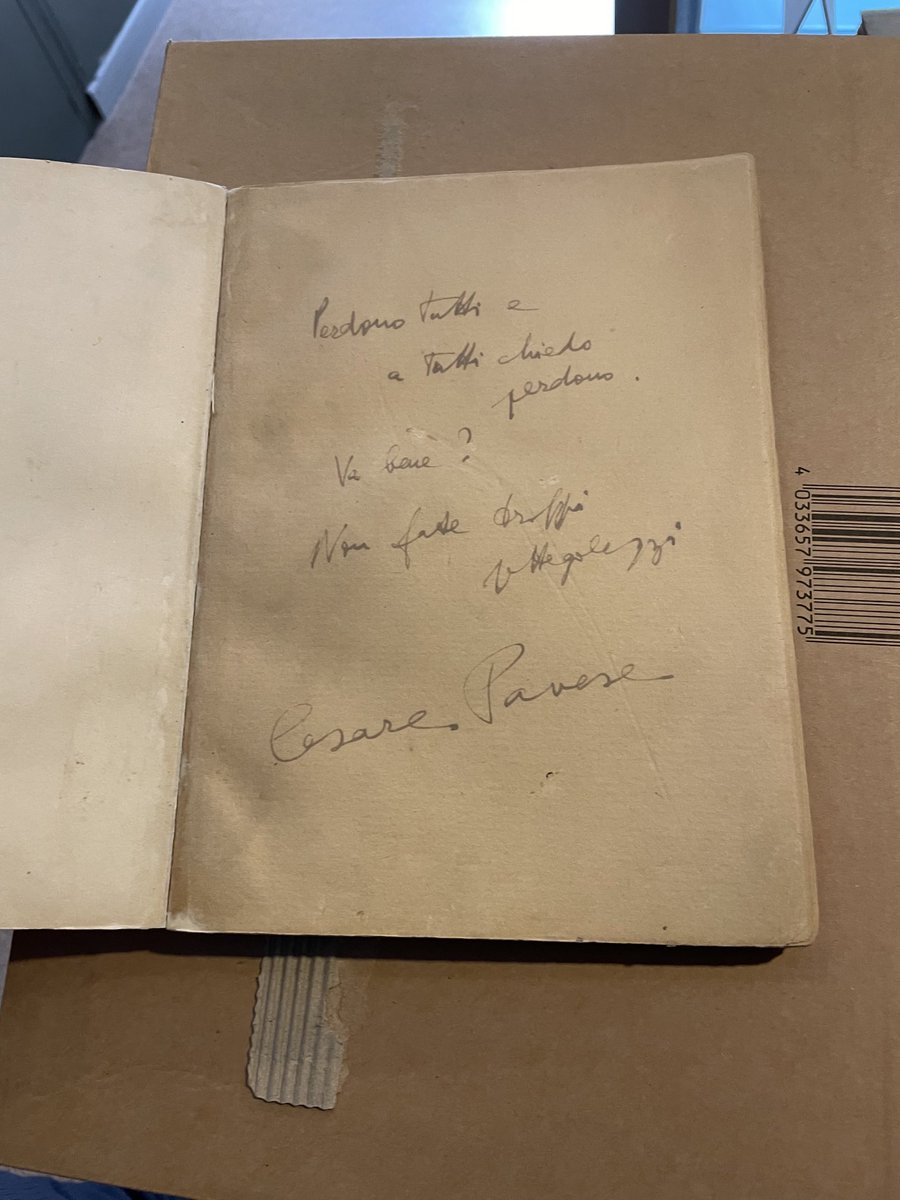 Perdono tutti e
a tutti chiedo
perdono.
Va bene?
Non fate troppi
pettegolezzi
Cesare Pavese
4 033657 973775